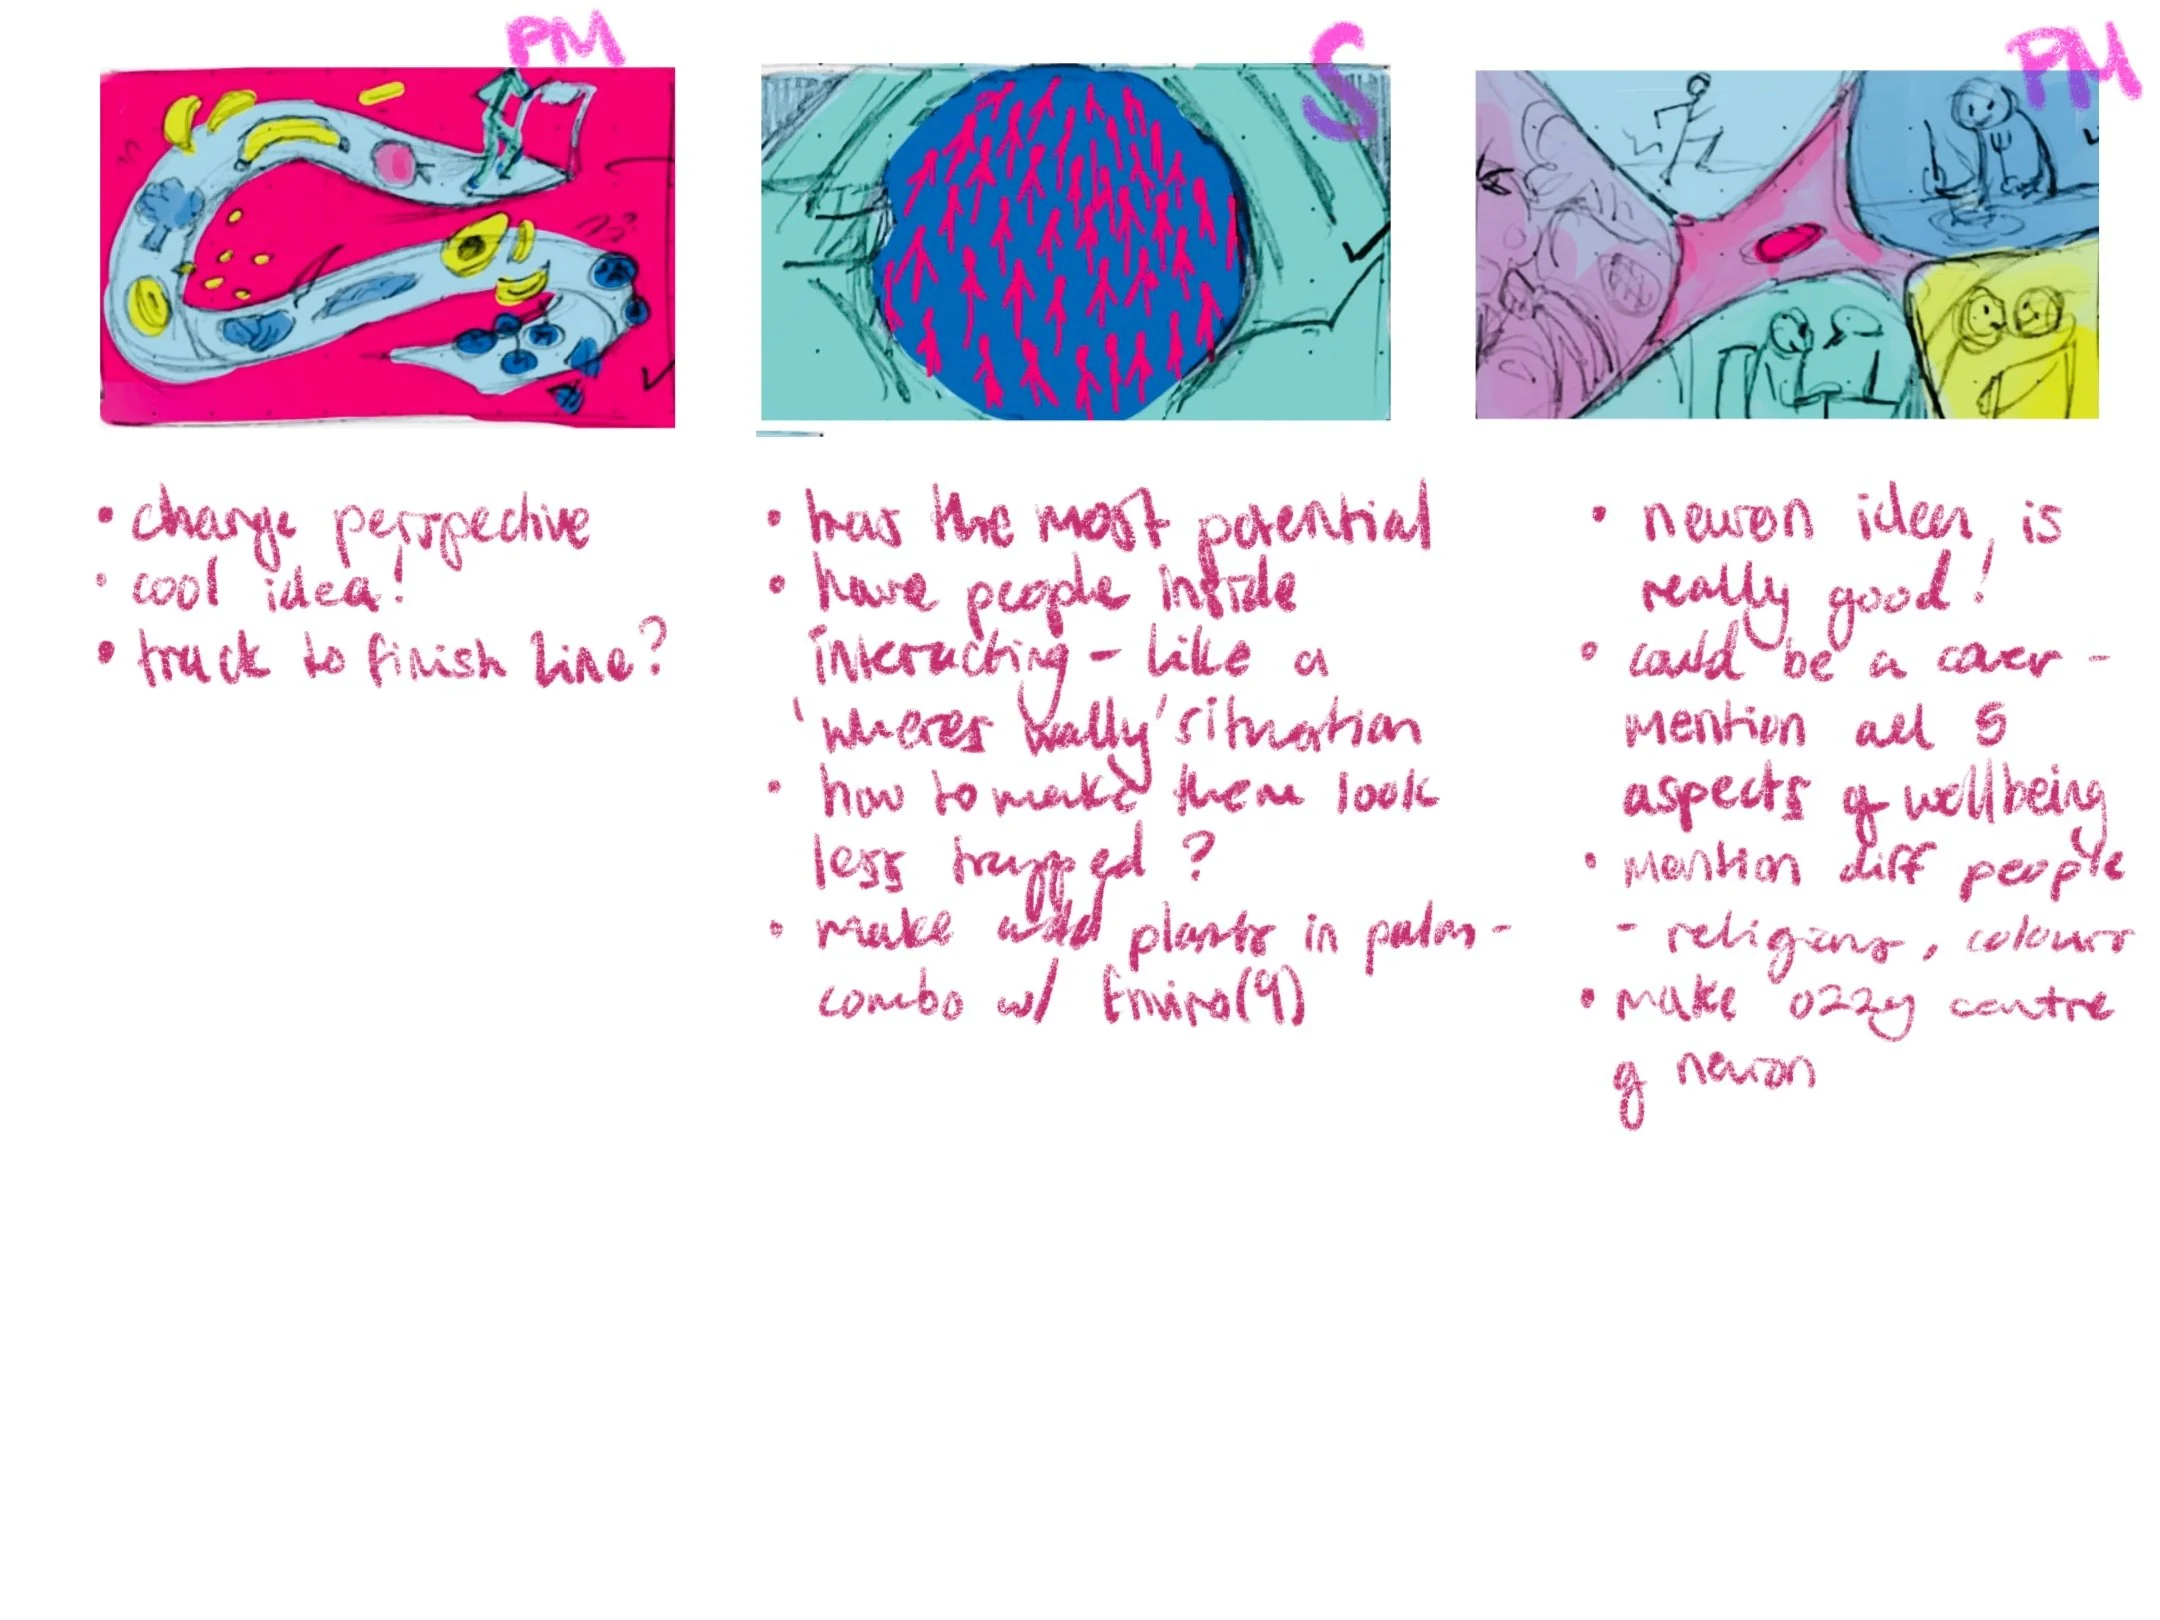 PM
• change perspective
• cool idea!
• track to finish line?
S
• has the most potential
• have people inside
interacting - like a
'wheres wally' situation
• how to make them look
less trapped?
• make add plants in palm -
combo w/ Enviro(9)
PM
• neuron idea is
really good!
• could be a cover -
mention all 5
aspects of wellbeing
• mention diff people
- religions, colours
• make ozzy centre
of neuron